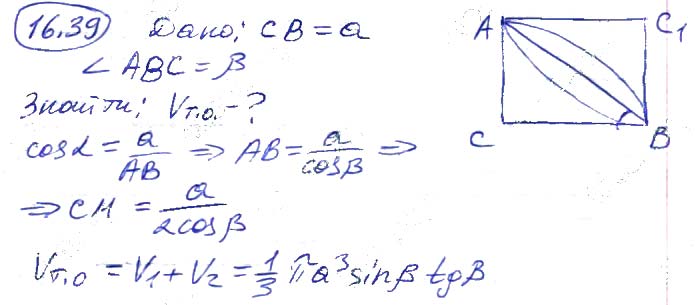 16.39 Дано; CB = a
∠ABC = β
Знайти; Vт.о. - ?
cosα = a/AB ⇒ AB = a/cosβ ⇒
⇒ CH = a/2cosβ
Vт.о = V₁ + V₂ = 1/3 πa³ sinβ tgβ
A C₁
C B